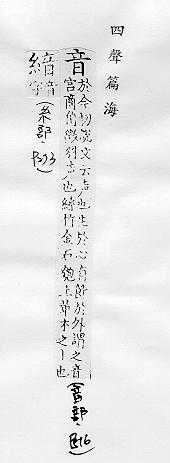 四聲篇海
音
於今切說文云声也生於心有節於外謂之音
宮商角徵羽声也絲竹金石匏土革木之丨也
(音部,
P.16)
䋡
音
字
(糸部,